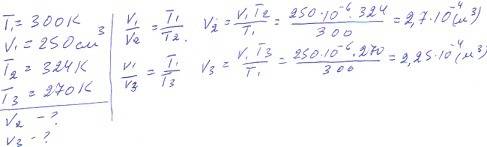 T₁=300K
V₁=250см³
T₂=324K
T₃=270K
V₂-?
V₃-?
V₁/V₂=T₁/T₂. V₂=V₁T₂/T₁=250·10⁻⁶·324/300=2,7·10⁻⁴(м³)
V₁/V₃=T₁/T₃ V₃=V₁T₃/T₁=250·10⁻⁶·270/300=2,25·10⁻⁴(м³)